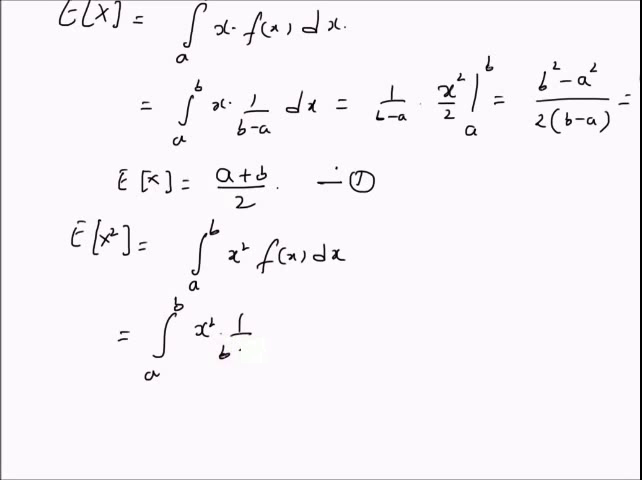 E[X] = ∫ₐ x· f(x) dx.
= ∫ₐᵇ x· 1/(b-a) dx = 1/(b-a) · x²/2 |ₐᵇ = (b²-a²)/(2(b-a)) =
E[x] = (a+b)/2 . — ①
E[x²] = ∫ₐᵇ x² f(x) dx
= ∫ₐᵇ x² · 1/b